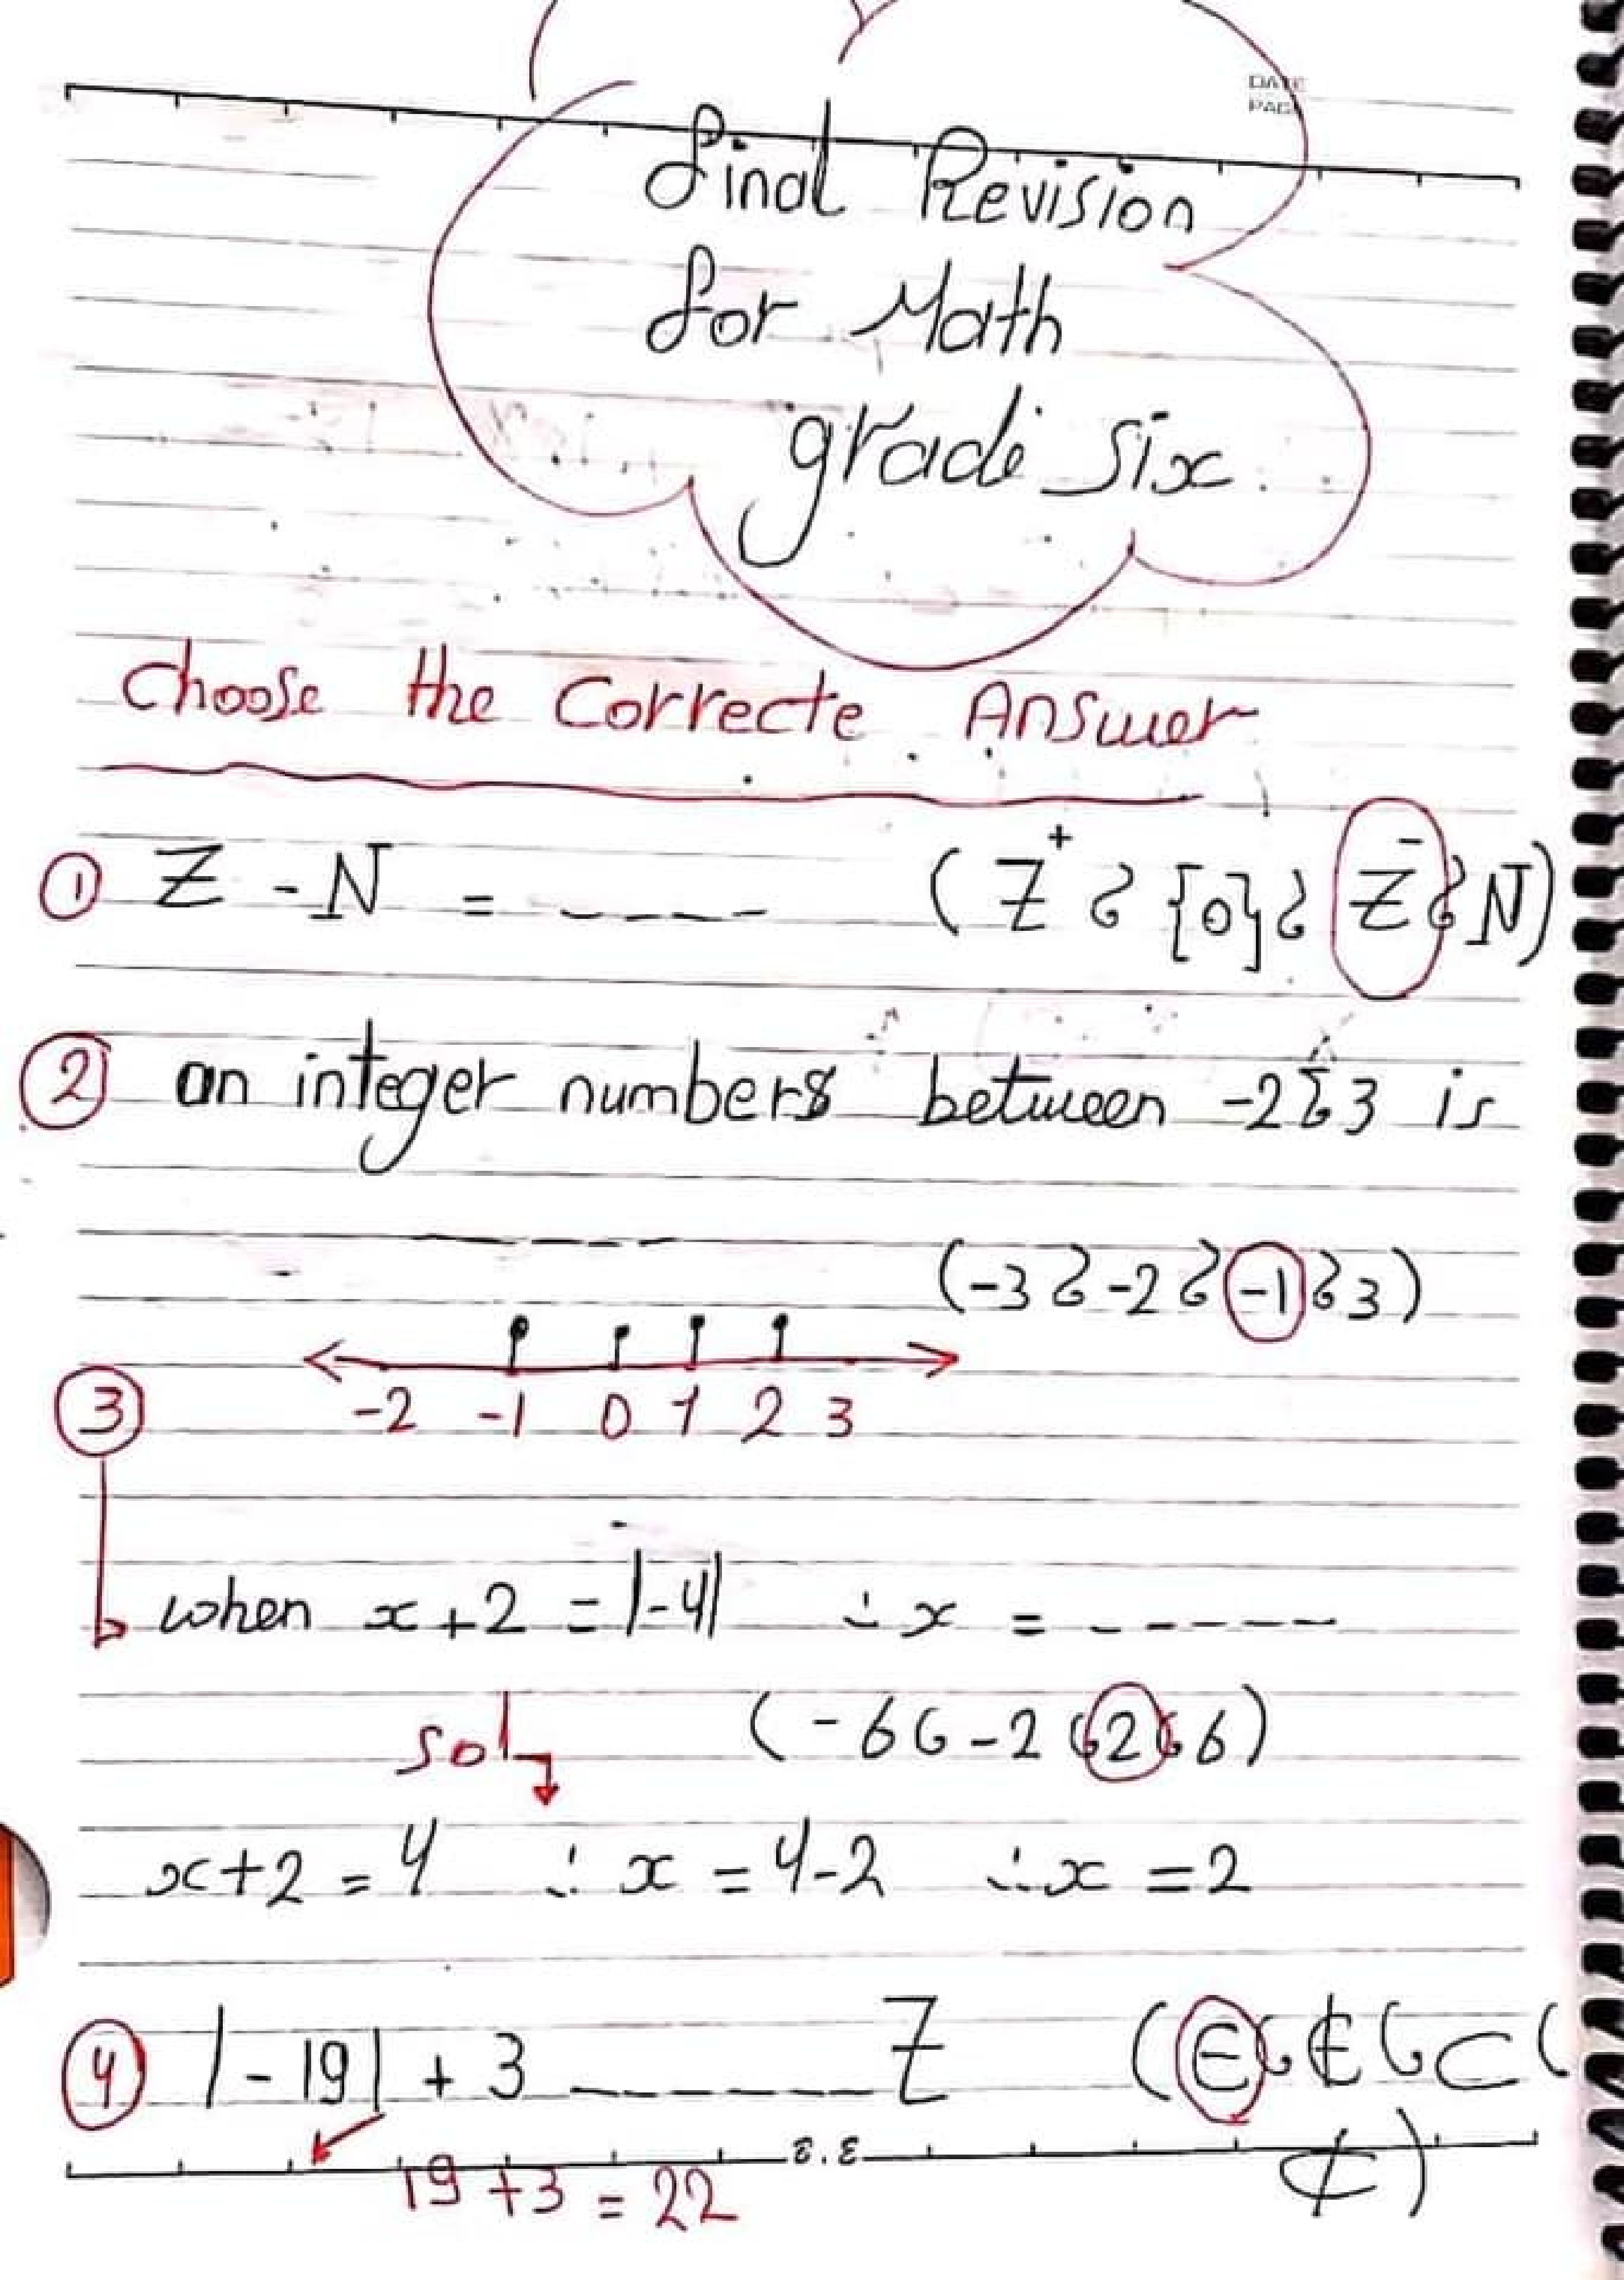 DATE
PAGE
final Revision
for Math
grade six
Choose the Correcte Answer
① Z - N = ---- (Z⁺ ، {0} ، Z⁻ ، N)
② an integer numbers between -2 ، 3 is
------ (-3 ، -2 ، -1 ، 3)
-2 -1 0 1 2 3
③
when x+2 = |-4| ∴ x = ------
sol (-6 ، -2 ، 2 ، 6)
x+2 = 4 ∴ x = 4-2 ∴ x = 2
④ |-19| + 3 ------ Z (∈ ، ∉ ، ⊂ ،
⊄)
19 + 3 = 22